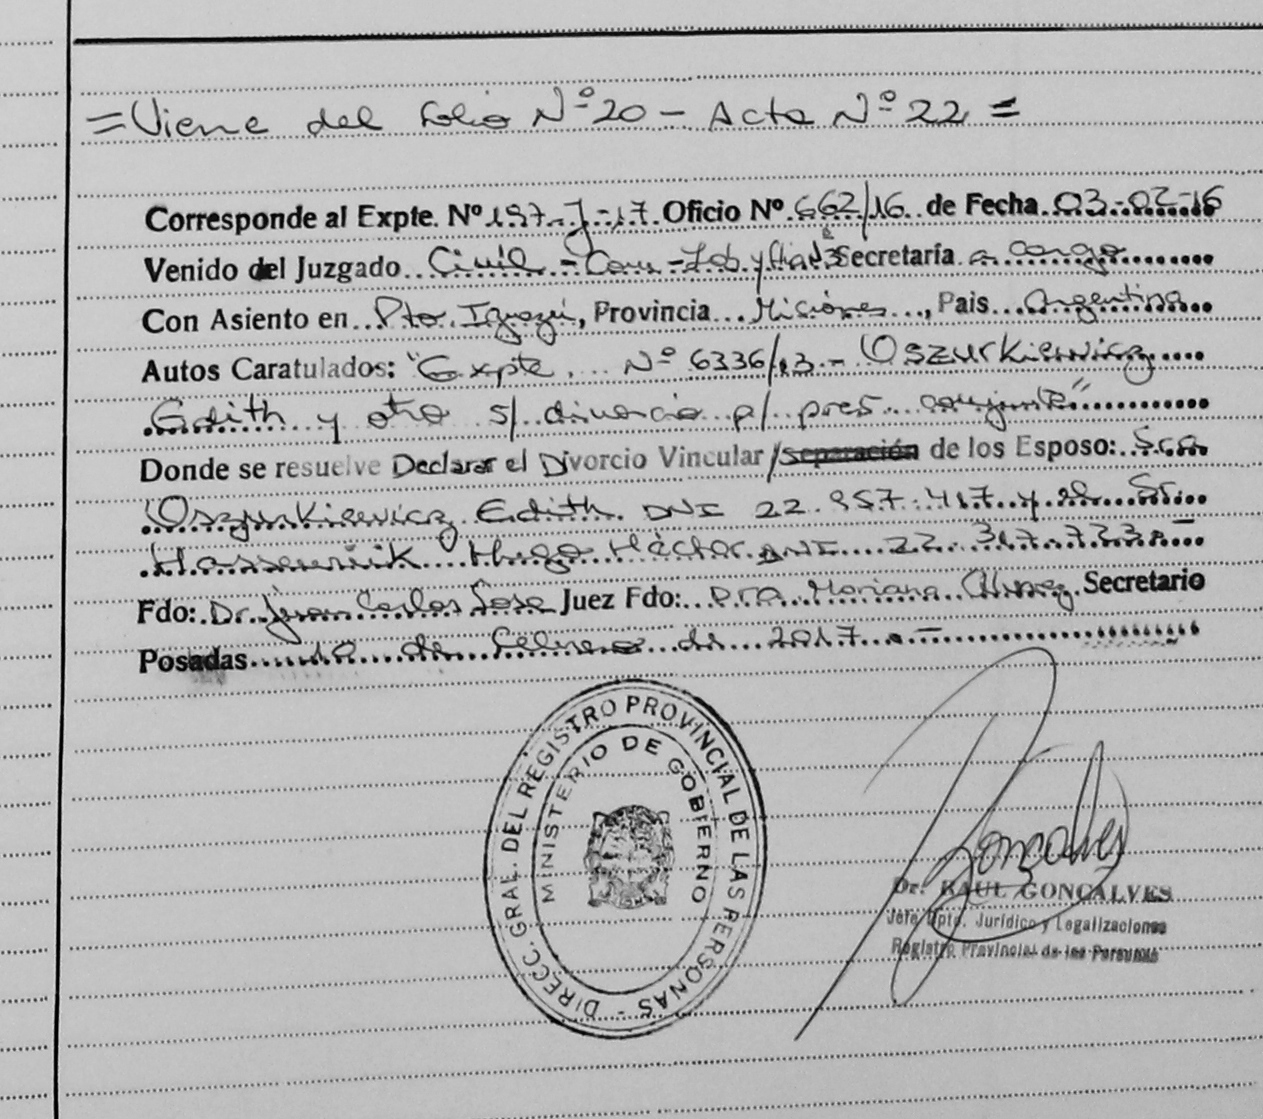 = Viene del Folio Nº 20 - Acta Nº 22 =
Corresponde al Expte. Nº 197-J-17 Oficio Nº 662/16 de Fecha 03-02-16
Venido del Juzgado Civil - Com - Lab y Flia Secretaría a cargo
Con Asiento en Pto. Iguazú, Provincia Misiones, Pais Argentina
Autos Caratulados: "Expte. Nº 6336/13 - Oszurkiewicz
Edith y otro s/ divorcio p/ pres. conjunta"
Donde se resuelve Declarar el Divorcio Vincular/separación de los Esposo: Sra
Oszurkiewicz Edith DNI 22.957.417 y el Sr.
Hugo Héctor DNI 22.317.723.-
Fdo: Dr. Juan Carlos Sosa Juez Fdo: Dra Mariana Secretario
Posadas 10 de Febrero de 2017.-
DIRECC. GRAL. DEL REGISTRO PROVINCIAL DE LAS PERSONAS -
MINISTERIO DE GOBIERNO
Gonçalves
Dr. RAUL GONCALVES
Jefe Dpto. Jurídico y Legalizaciones
Registro Provincial de las Personas